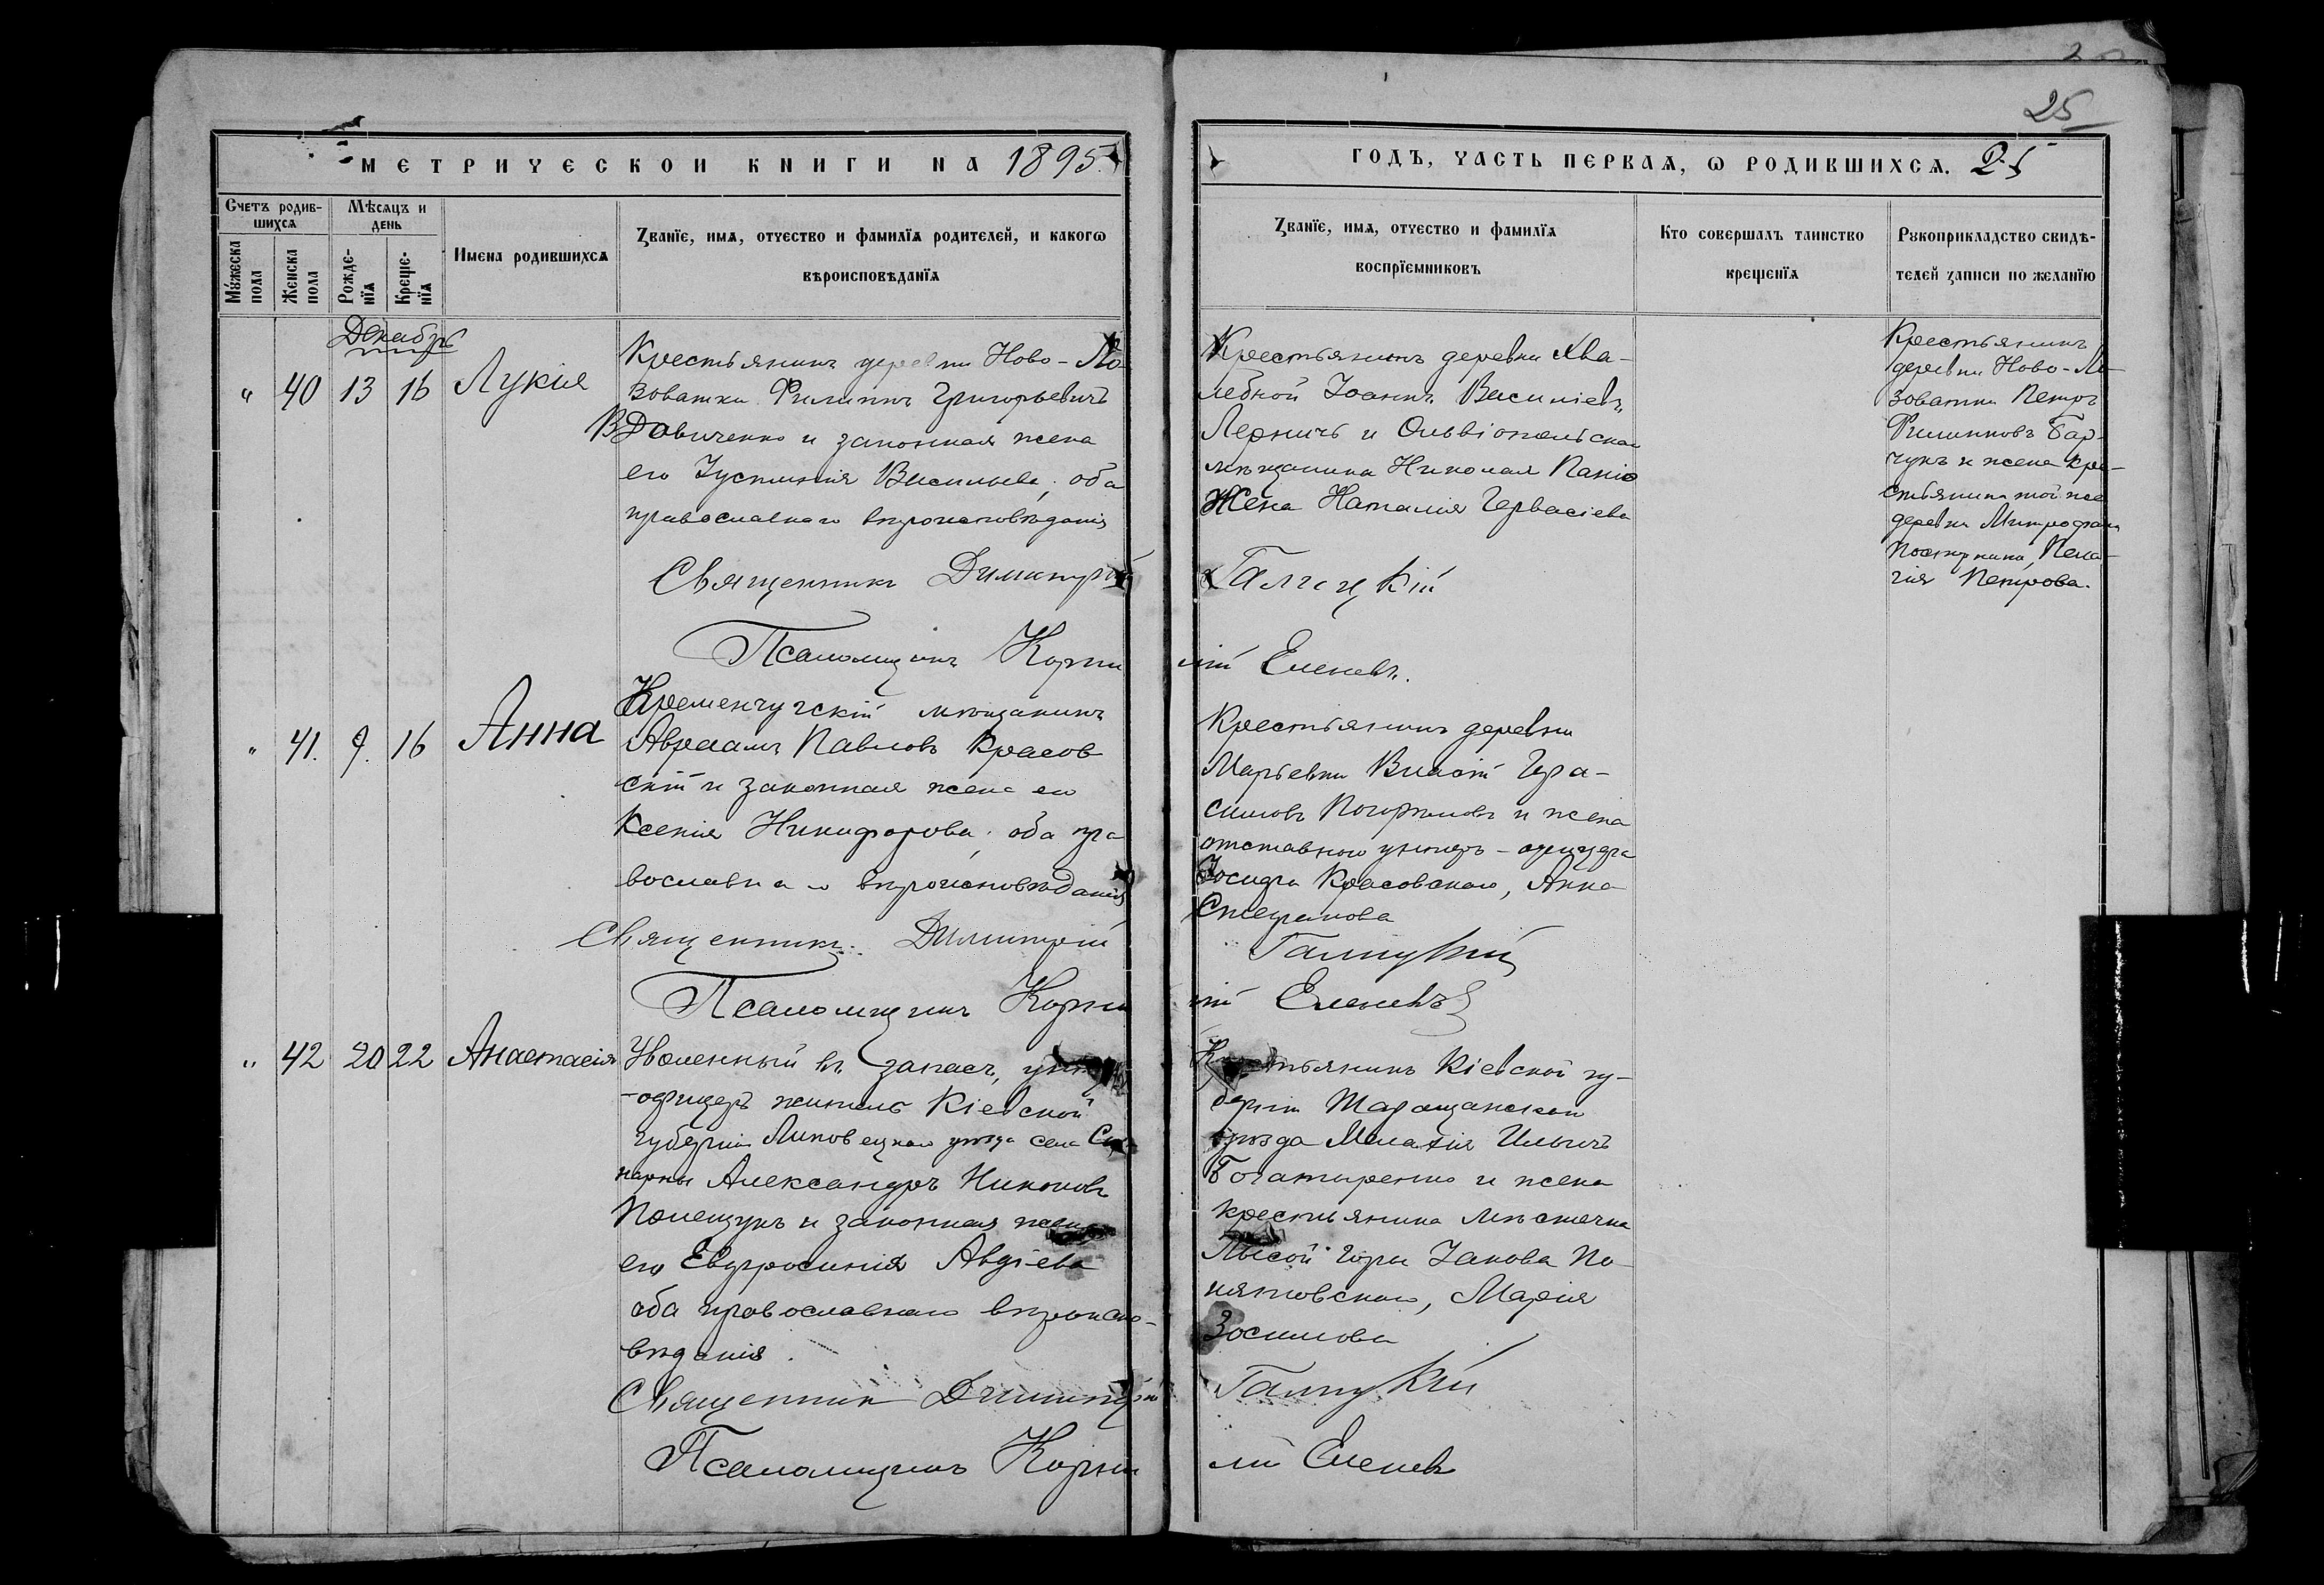 25
МЕТРИЧЕСКОЙ КНИГИ НА 1895.
ГОДЪ, ЧАСТЬ ПЕРВАѦ, Ѡ РОДИВШИХСѦ. 25
Счетъ родив-
шихсѧ
Мѣсѧцъ и
день
Мꙋжеска
пола
Женска
пола
Рожде-
нїѧ
Креще-
нїѧ
Имена родившихсѧ
Званїе, имѧ, отчество и фамилїѧ родителей, и какогѡ
вѣроисповѣданїѧ
Званїе, имѧ, отчество и фамилїѧ
воспрїемниковъ
Кто совершалъ таинство
крещенїѧ
Рꙋкоприкладство свидѣ-
телей записи по желанїю
Декабрь
" 40 13 16 Лукія
Крестьянинъ деревни Ново-Ло-
зоватки Филиппъ Григорьевичъ
Вдовиченко и законная жена
его Іустинія Васильева, оба
православнаго вѣроисповѣданія
Крестьянинъ деревни Хва-
лебной Іоаннъ Василіевъ
и Ольвіопольскаго
мѣщанина Николая
жена Наталія Гервасіева
Крестьянинъ
деревни Ново-Ло-
зоватки Петръ
Филипповъ Бар-
чукъ и жена кре-
стьянина той же
деревни Митрофана
Пела-
гія Петрова.
Священникъ Димитрій Галицкій
Псаломщикъ Корнилій Еленевъ.
" 41. 9. 16 Анна
Кременчугскій мѣщанинъ
Авраамъ Павловъ Красов
скій и законная жена его
Ксенія Никифорова, оба пра
вославнаго вѣроисповѣданія
Крестьянинъ деревни
Марьевки Власій Гера-
симовъ и жена
отставного унтеръ-офицера
Іосифа Красовскаго, Анна
Стефанова
Священникъ Димитрій Галицкій
Псаломщикъ Корнилій Еленевъ
" 42 20 22 Анастасія
Уволенный въ запасъ, унтеръ
-офицеръ житель Кіевской
губерніи Липовецкаго уѣзда села
Александръ Никоновъ
Полещукъ и законная жена
его Евфросинія Авдіева
оба православнаго вѣроиспо-
вѣданія.
Крестьянинъ Кіевской гу-
берніи Таращанскаго
уѣзда Мелетія Ильичъ
Богатыренко и жена
крестьянина мѣстечка
Лысой Горы Іакова По-
нятовскаго, Марія
Зосимова
Священникъ Димитрій Галицкій
Псаломщикъ Корнилій Еленевъ